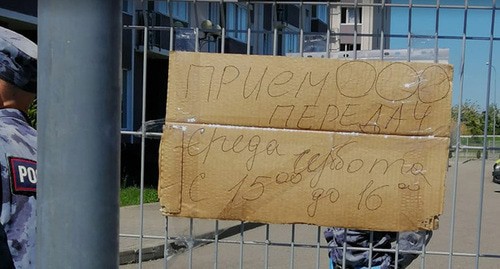 ПРИЕМ ООО
ПЕРЕДАЧ
среда суббота
с 15 00 до 16 00
РО